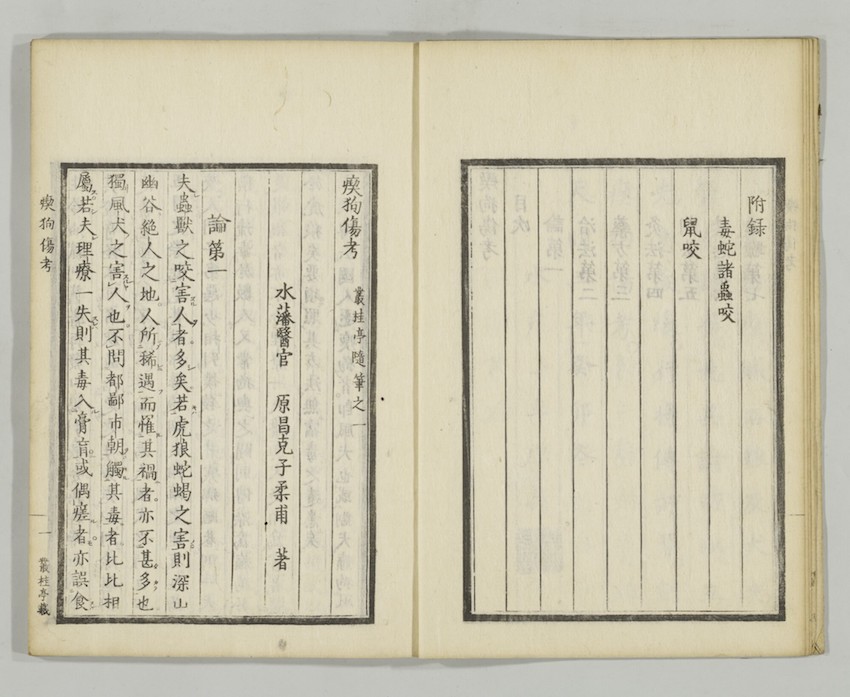 附録
毒蛇諸蟲咬
鼠咬
瘈狗傷考
叢桂亭隨筆之一
水藩醫官 原昌克子柔甫 著
論第一
夫蟲獸之咬害人者多矣若虎狼蛇蝎之害則深山
幽谷絕人之地人所稀遇而惟其禍者亦不甚多也
獨風犬之害人也不問都鄙市朝觸其毒者比比相
屬若夫理療一失則其毒入膏肓或偶瘥者亦誤食
瘈狗傷考
一
叢桂亭藏